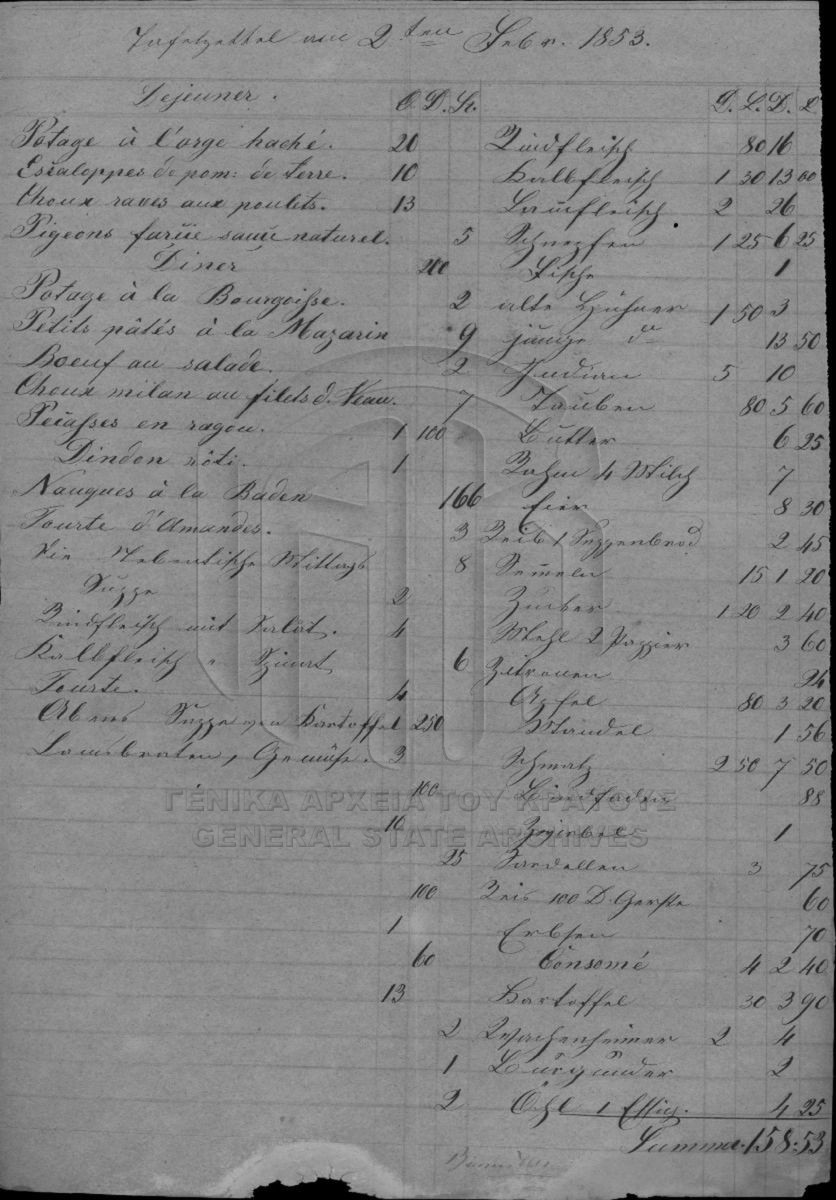 Tafelzettel am 2ten Febr. 1853.
Dejeuner. O. D. St. D. L. D. L
Potage à l'orge haché. 20 Rindfleisch 80 16
Escaloppes de pom: de terre. 10 Kalbfleisch 1 30 13 00
Choux raves aux poulets. 13 Lamfleisch 2 26
Pigeons farüe sauce naturel. 5 Schnepfen 1 25 6 25
Diner 200 Fische 1
Potage à la Bourgoisse. 2 alte Hühner 1 50 3
Petits pâtés à la Mazarin 9 junge do 13 50
Boeuf au salade. 2 Indian 5 10
Choux milan au filets d. Veau. 7 Tauben 80 5 60
Pecasses en ragou. 1 100 Butter 6 25
Dindon rôti. 1 Rahm 4 Milch 7
Nauques à la Baden 166 Eier 8 30
Tourte d'Amandes. 3 Reib 1 Suppenbrod 2 45
Die Nebentische Mittags 8 Semeln 15 1 20
Suppe 2 Zucker 1 20 2 40
Rindfleisch mit Salat. 4 Mehl 2 Pappier 3 60
Kalbfleisch " Spinat 6 Zitronen 24
Tourte. 4 Apfel 80 3 20
Abens Suppe von Kartoffel 1 250 Mandel 1 56
Lamsbraten, Gemüse. 3 Schmalz 2 50 7 50
100 Bindfaden 88
ΓΕΝΙΚΑ ΑΡΧΕΙΑ ΤΟΥ ΚΡΑΤΟΥΣ
10 Zwiebel 1
GENERAL STATE ARCHIVES
25 Sardellen 3 75
100 Reis 100 D. Gerste 60
1 Erbsen 70
60 Consomé 4 2 40
13 Kartoffel 30 3 90
2 Wachenheimer 2 4
1 Burgunder 2
2 Öhl 1 Essig. 4 25
Summa. 158:53